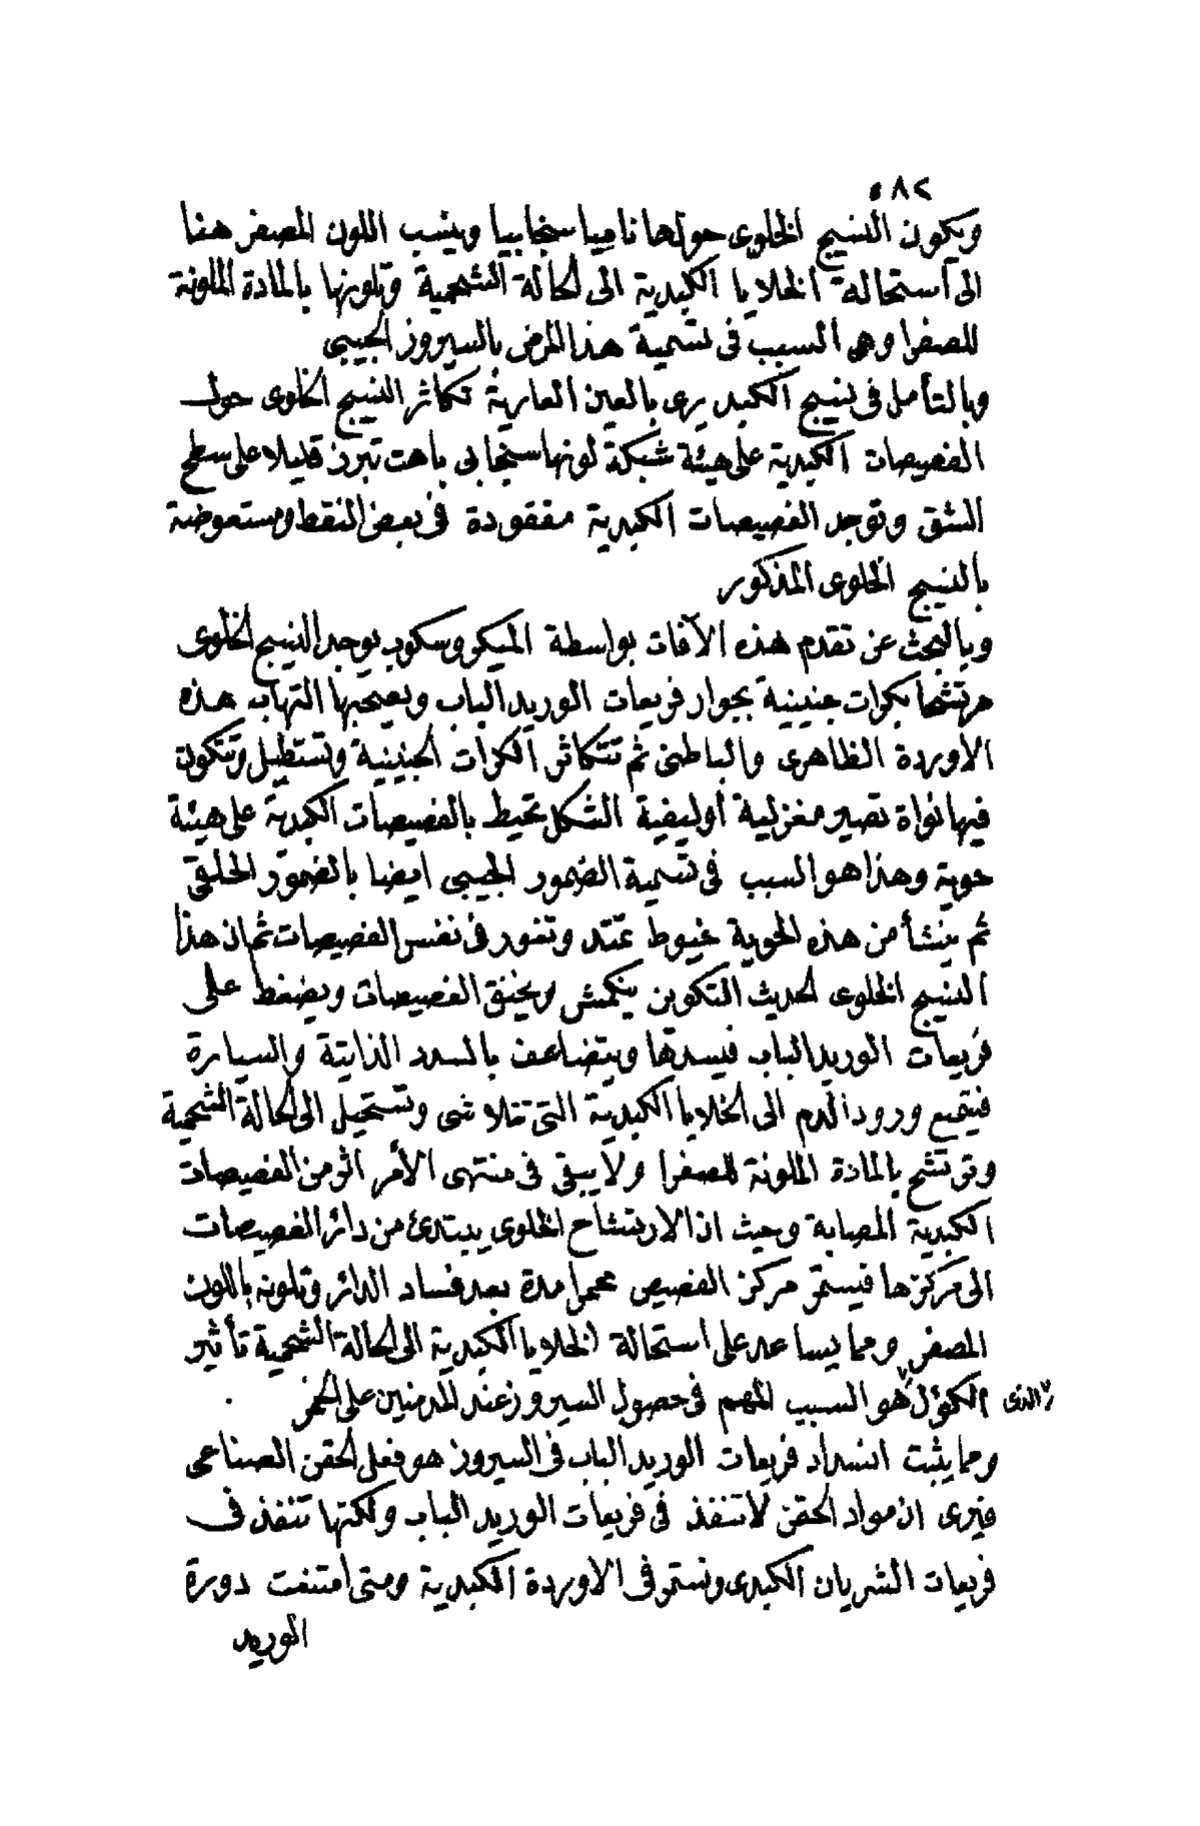 ٥٨٢
ويكون النسيج الخلوى حولها ناميا سنجابيا وينسب اللون المصفر هنا
الى استحالة الخلايا الكبدية الى الحالة الشحمية وتلونها بالمادة الملونة
للصفرا وهى السبب فى تسمية هذا المرض بالسيروز الحبيبى
وبالتأمل فى نسيج الكبد يرى بالعين العارية تكاثر النسيج الخلوى حول
الفصيصات الكبدية على هيئة شبكة لونها سنجابى باهت تبرز قليلا على سطح
الشق وتوجد الفصيصات الكبدية مفقودة فى بعض النقط ومستعوضة
بالنسيج الخلوى المذكور
وبالبحث عن تقدم هذه الآفات بواسطة الميكروسكوب يوجد النسيج الخلوى
مرتشحا بكرات جنينية بجوار فريعات الوريد الباب ويصحبها التهاب هذه
الاوردة الظاهرى والباطنى ثم تتكاثر الكرات الجنينية وتستطيل وتتكون
فيها نواة تصير مغزلية أوليفية الشكل تحيط بالفصيصات الكبدية على هيئة
حوية وهذا هو السبب فى تسمية الضمور الحبيبى ايضا بالضمور الحلقى
ثم ينشأ من هذه الحوية خيوط تمتد وتغور فى نفس الفصيصات ثم ان هذا
النسيج الخلوى الحديث التكوين ينكمش ويخنق الفصيصات ويضغط على
فريعات الوريد الباب فيسدها ويتضاعف بالسدد الذاتية والسيارة
فيتمنع ورود الدم الى الخلايا الكبدية التى تتلاشى وتستحيل الى الحالة الشحمية
وترتشح بالمادة الملونة للصفرا ولا يبقى فى منتهى الأمر اثر من الفصيصات
الكبدية المصابة وحيث ان الارتشاح الخلوى يبتدئ من دائر الفصيصات
الى مركزها فيستمر مركز الفصيص محمرا مدة بعد فساد الدائر وتلونه باللون
المصفر ومما يساعد على استحالة الخلايا الكبدية الى الحالة الشحمية تأثير
الكؤل الذى هو السبب المهم فى حصول السيروز عند المدمنين على الخمر
ومما يثبت انسداد فريعات الوريد الباب فى السيروز هو فعل الحقن الصناعى
فيرى ان مواد الحقن لا تنفذ فى فريعات الوريد الباب ولكنها تنفذ فى
فريعات الشريان الكبدى وتستمر فى الاوردة الكبدية ومتى امتنعت دورة
الوريد